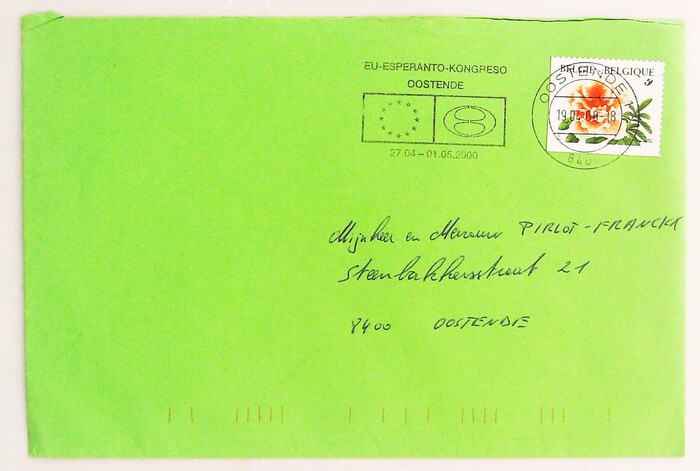 EU-ESPERANTO-KONGRESO
OOSTENDE
27.04 – 01.05.2000
BELGIE - BELGIQUE
OOSTENDE 1
19.04.00-18
8400
Mijnheer en Mevrouw PIRLOT-FRANCKX
Steenbakkersstraat 21
8400 OOSTENDE